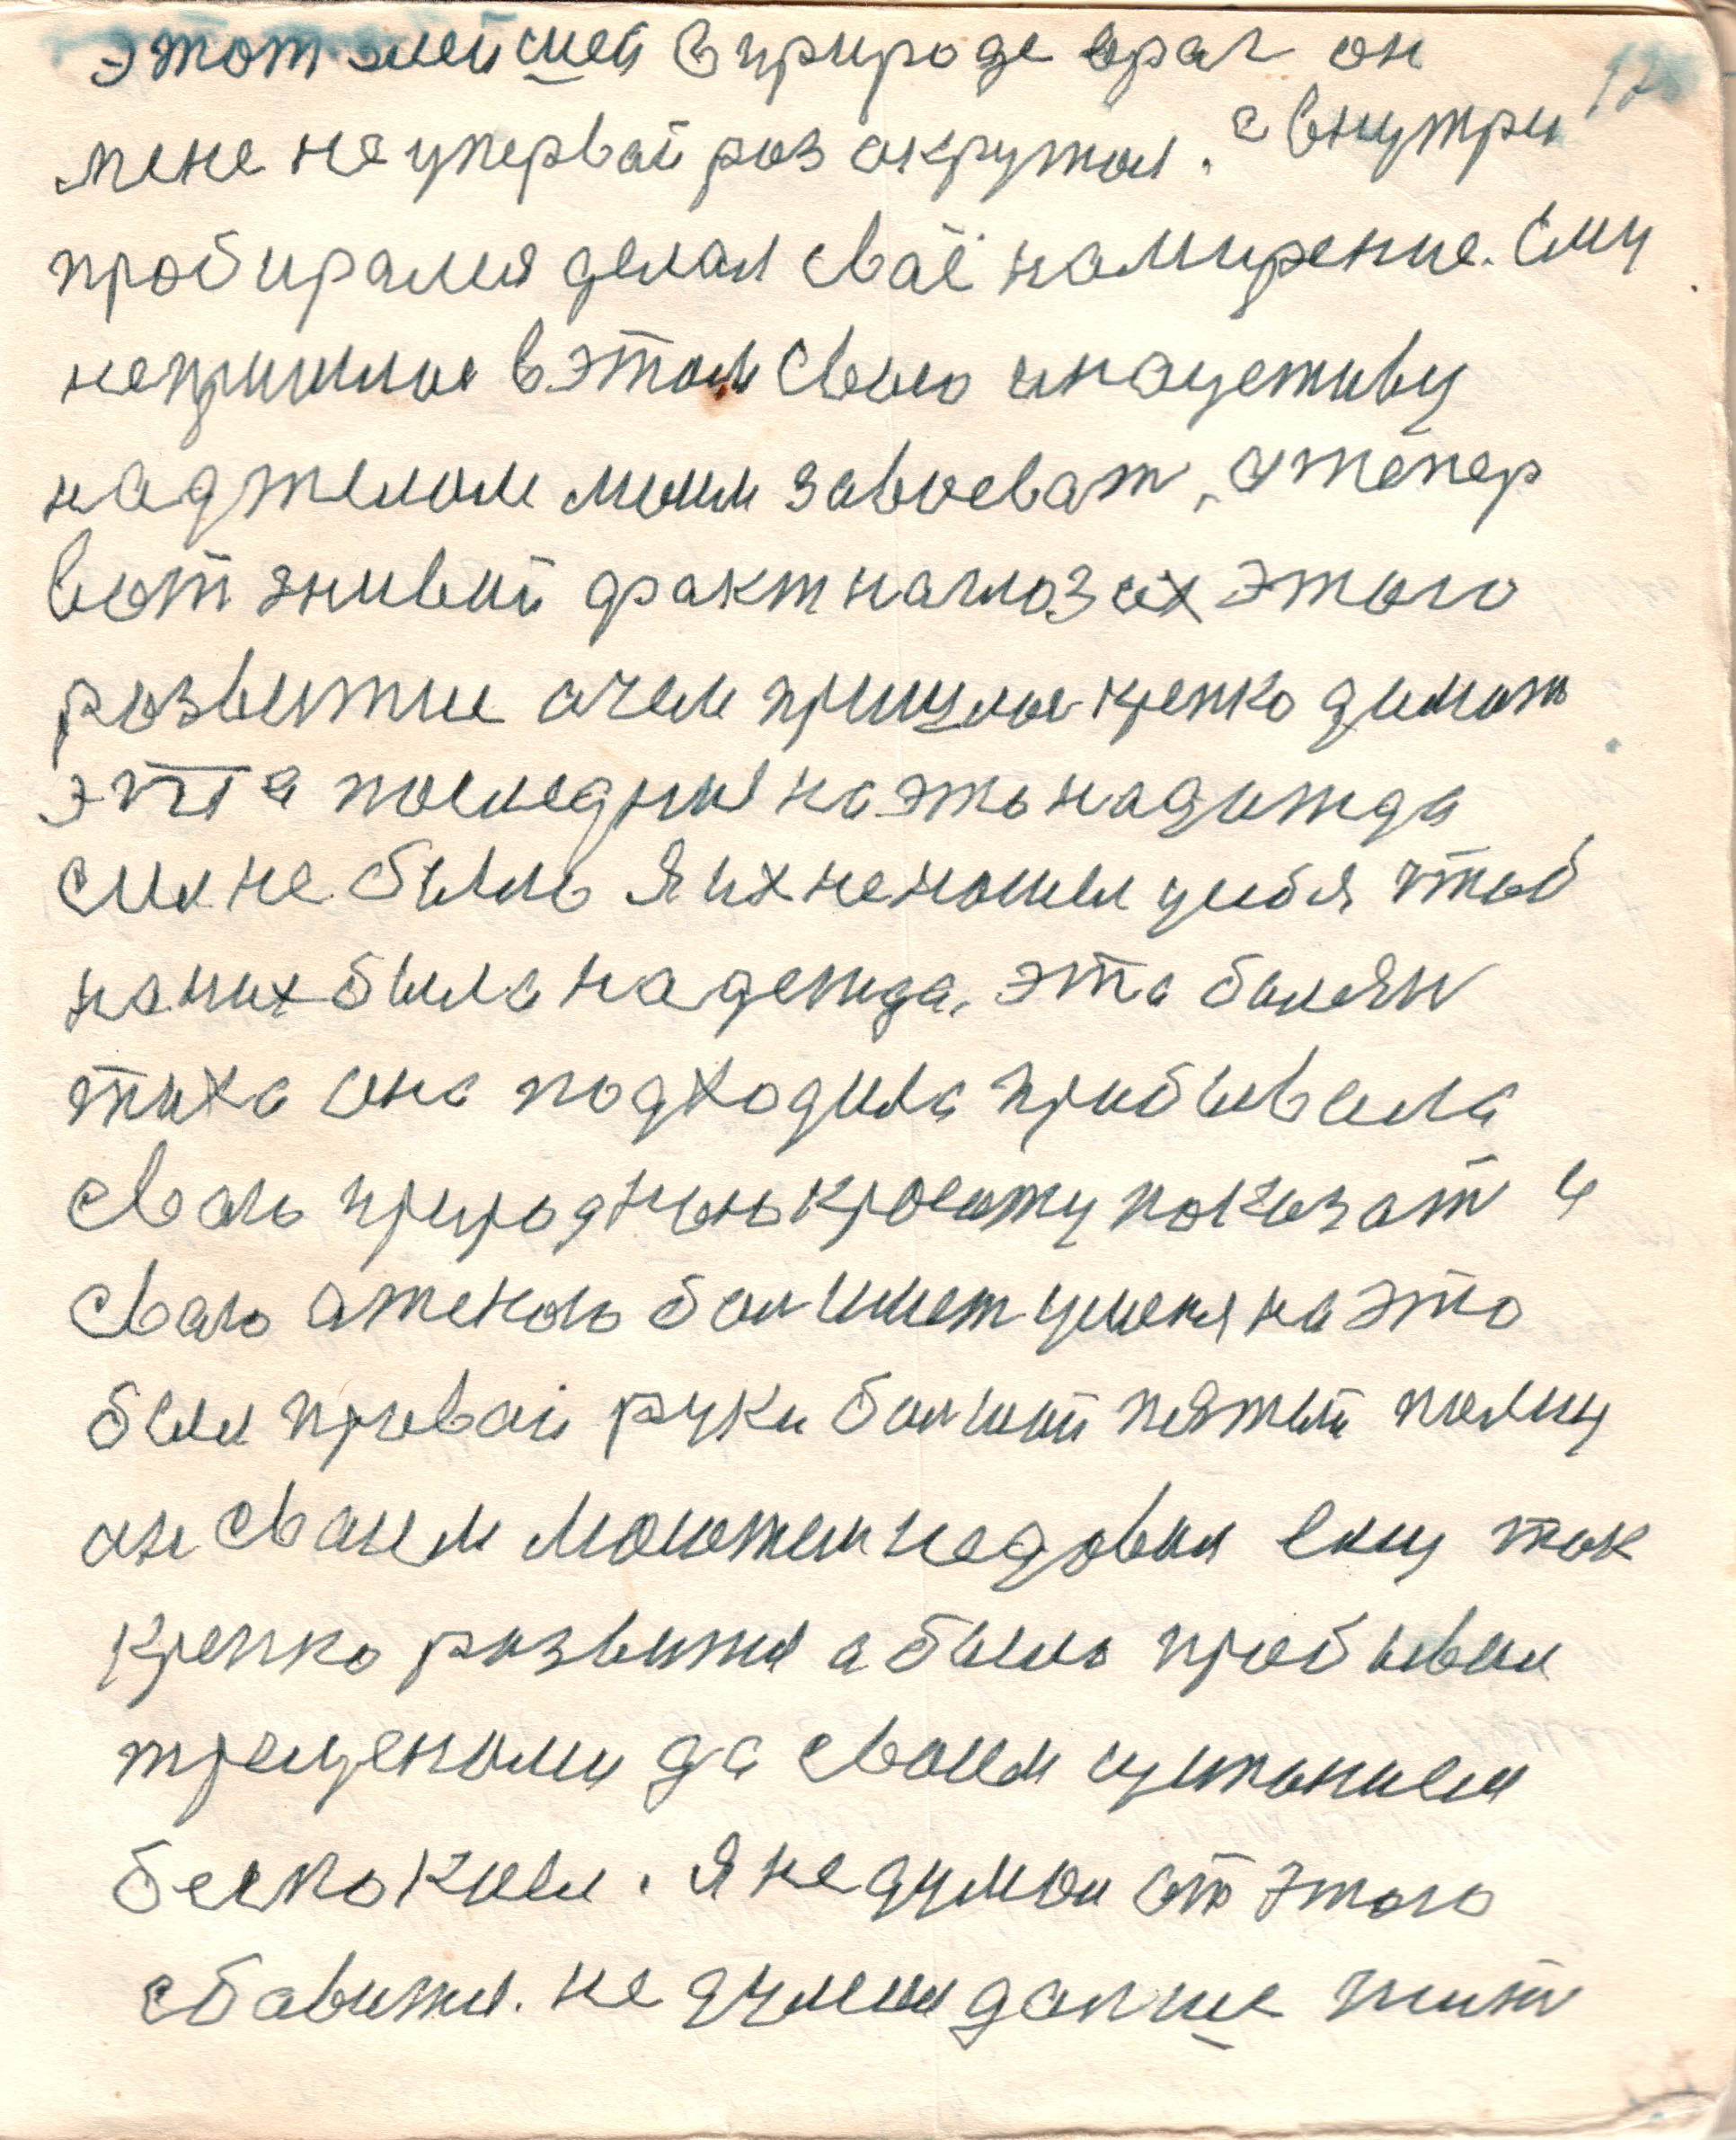 этот злейшей в природе враг он 128
мене не упервай раз окружал. с внутри
пробирался делал сваё намирение. Ему
непришлос в этом свою инацетиву
над телом моим завоеват, а тепер
вот живой факт на глазах этого
розвитие а чем пришлос крепко думать
эта последния на это надежда
сил не было Я их не нашел у себя чтоб
на них была надежда, эта болезн
тиха она подходила прибывала
сваю природную красоту показат и
сваю
был правай руки болшой пятый палиц
он сваем
крепко развится а было пробывал
трещенами да сваем щипанием
беспокоил. Я не думал от этого
сбавится. не думал далше жит